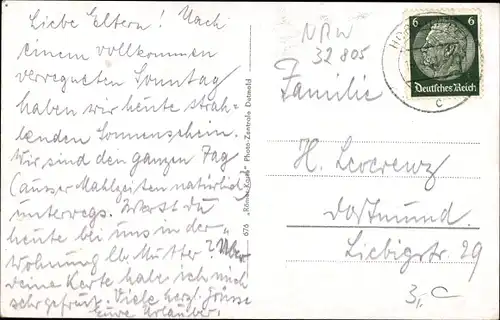 Liebe Eltern! Nach
einem vollkommen
verregneten Sonntag
haben wir heute strah-
lenden Sonnenschein.
Wir sind den ganzen Tag
(ausser Mahlzeiten natürlich)
unterwegs. Warst du
heute bei uns in der
Wohnung lb. Mutter? Über
deine Karte habe ich mich
sehr gefreut. Viele herz. Grüsse
Eure Urlauber.
676 „Römer-Karte“ Photo-Zentrale Detmold
NRW
32805
6 6
Deutsches Reich
HO
c
Familie
H.
Dortmund
Liebigstr 29
3,C